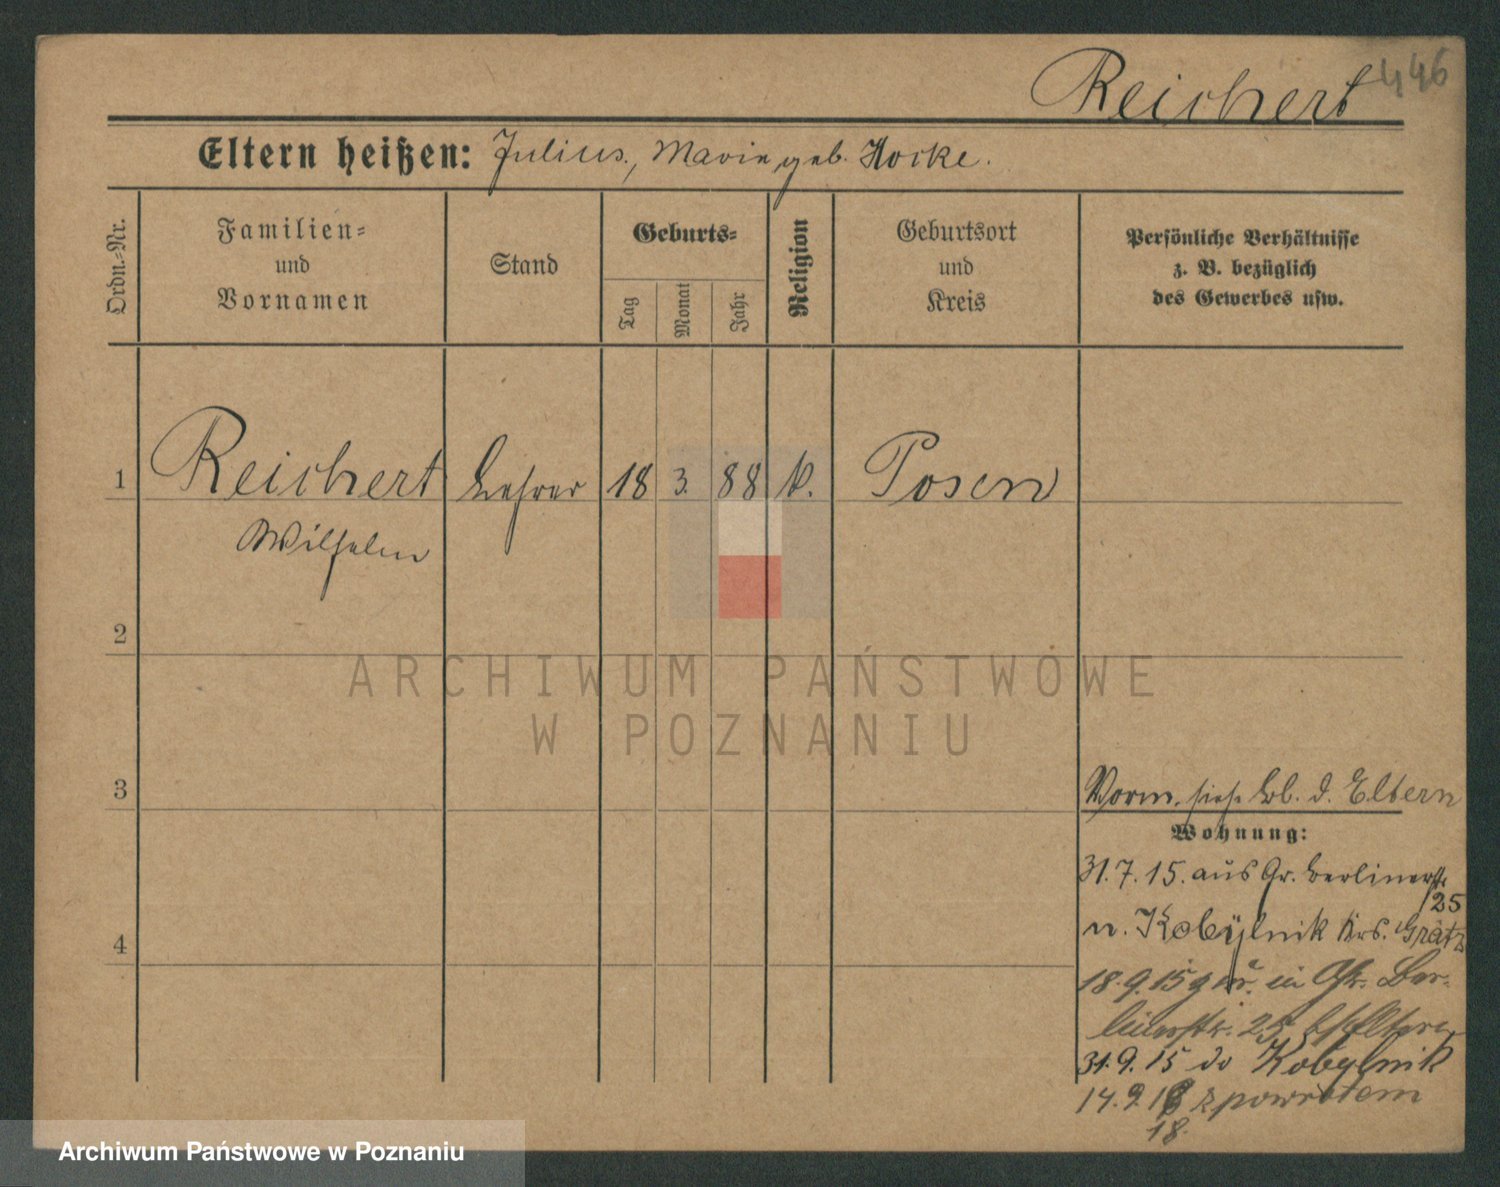 Reichert 446
Eltern heißen: Julius, Marie geb. Hocke.
Ordn.-Nr.
Familien-
und
Vornamen
Stand
Geburts-
Tag
Monat
Jahr
Religion
Geburtsort
und
Kreis
Persönliche Verhältnisse
z. B. bezüglich
des Gewerbes usw.
1 Reichert Lehrer 18 3. 88 k. Posen
Wilhelm
2
ARCHIWUM PAŃSTWOWE
W POZNANIU
3
Vorm. siehe bb. d. Eltern
Wohnung:
31.7.15. aus Gr. Berlinerstr.
25
n. Kobylnik Krs. Grätz
4
18.9.15 zur. in Gr. Ber-
linerstr. 25 Eltern
31.9.15 do Kobylnik
14.9.18 z powrotem
18.
Archiwum Państwowe w Poznaniu